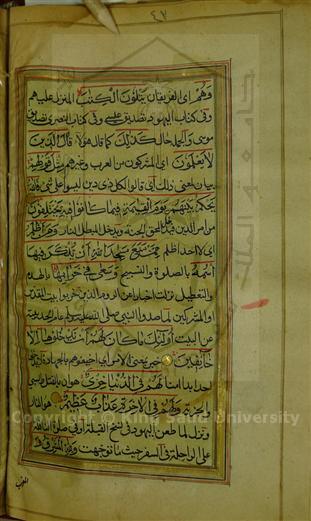 ٤٧
وهم اى الفريقان يتلون الكتب المنزل عليهم
وفى كتاب اليهود تصديق عيسى وفى كتاب النصرى تصديق
موسى والجملة حال كذلك كما قال هؤلاء قال الذين
لا يعلمون اى المشركون من العرب وغيرهم مثل قولهم
بيان لمعنى ذلك اى قالوا لكل ذى دين ليسوا على شئ فالله
يحكم بينهم يوم القيمة فيما كانوا فيه يختلفون
من امر الدين فيدخل المحق الجنة ويدخل المبطل النار ومن اظلم
اى لا احد اظلم ممن منع مسجد الله ان يذكر فيها
اسمه بالصلوة والتسبيح وسعى فى خرابها بالهدم
والتعطيل نزلت اخبارا عن الروم الذين خربوا بيت المقدس
او المشركين لما صدوا النبى صلى الله عليه وسلم عام الحديبية
عن البيت اولئك ما كان لهم ان يدخلوها الا
خائفين خبر بمعنى الامر اى اخيفوهم بالجهاد فلا يدخلها
احد امنا لهم فى الدنيا خزى هوان بالقتل والسبى
والجزية ولهم فى الاخرة عذاب عظيم هو النار
ونزل لما طعن اليهود فى نسخ القبلة او فى صلوة النافلة
على الراحلة فى السفر حيث ما توجهت ولله المشرق و
المغرب
Copyright © King Saud University